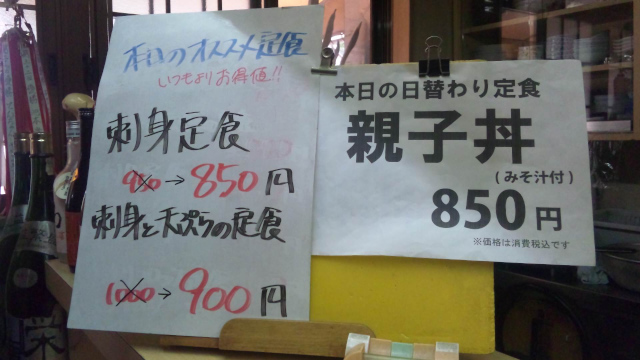 本日のオススメ定食
いつもよりお得値!!
刺身定食
900→850円
刺身と天ぷらの定食
1000→900円
本日の日替わり定食
親子丼
(みそ汁付)
850円
※価格は消費税込です
栄